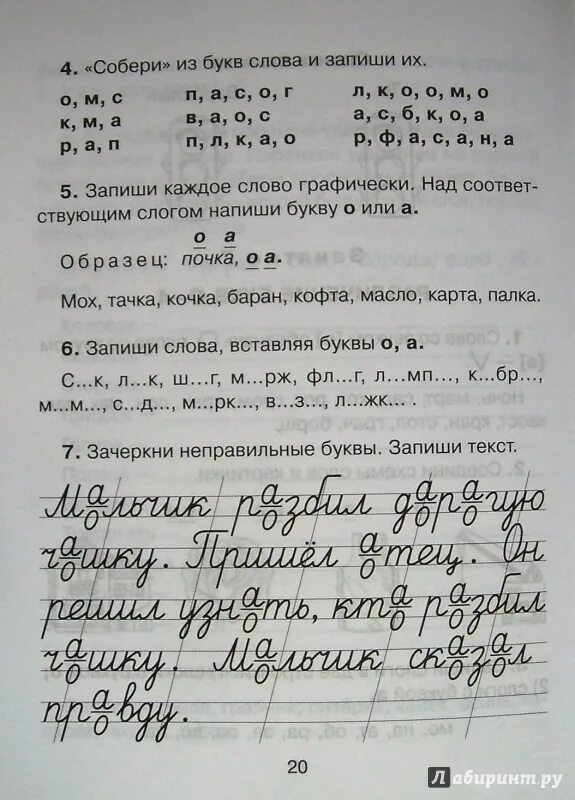 4. «Собери» из букв слова и запиши их.
о, м, с п, а, с, о, г л, к, о, о, м, о
к, м, а в, а, о, с а, с, б, к, о, а
р, а, п п, л, к, а, о р, ф, а, с, а, н, а
5. Запиши каждое слово графически. Над соответ-
ствующим слогом напиши букву о или а.
о а
Образец: почка, о а.
Мох, тачка, кочка, баран, кофта, масло, карта, палка.
6. Запиши слова, вставляя буквы о, а.
С...к, л...к, ш...г, м...рж, фл...г, л...мп..., к...бр...,
м...м..., с...д..., м...рк..., в...з..., л...жк... .
7. Зачеркни неправильные буквы. Запиши текст.
Ма/ольчик ра/озбил да/ора/огую
ча/ошку. Пришёл а/отец. Он
решил узна/оть, кта/о ра/озбил
ча/ошку. Ма/ольчик ска/оза/ол
пра/овду.
20
Лабиринт.ру